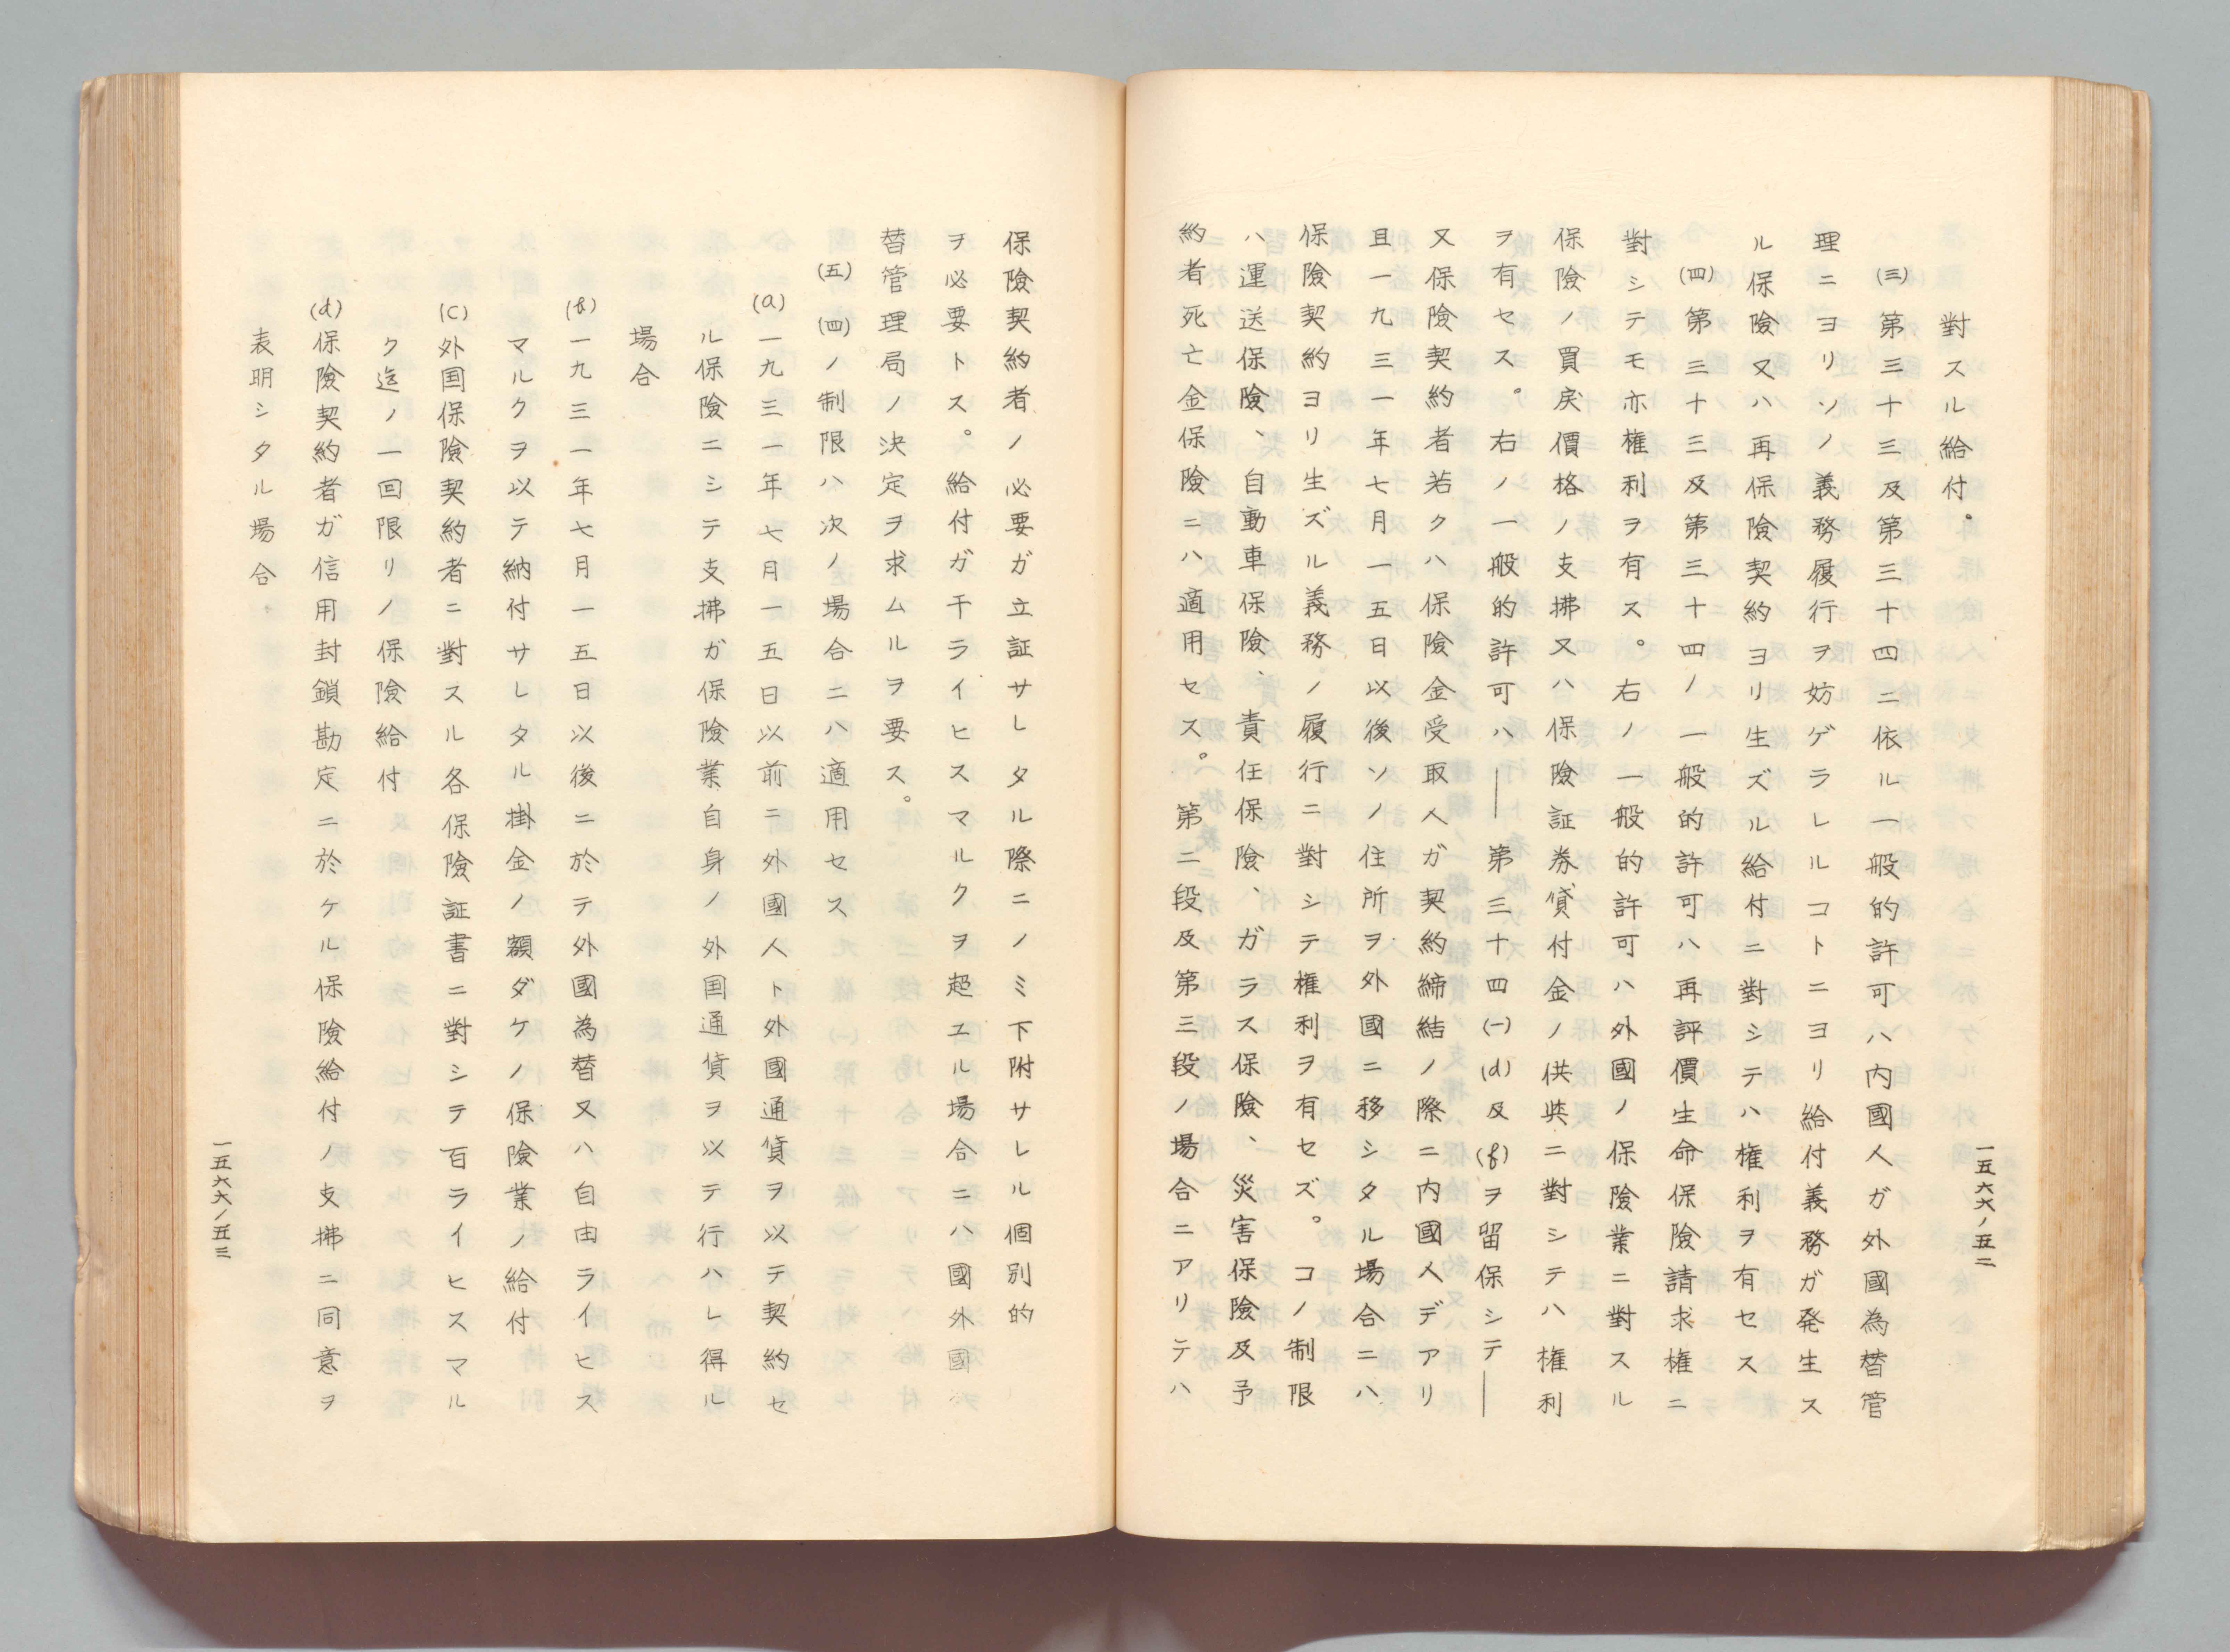 對スル給付。
(三)第三十三及第三十四ニ依ル一般的許可ハ内國人ガ外國為替管
理ニヨリソノ義務履行ヲ妨ゲラレルコトニヨリ給付義務ガ発生ス
ル保險又ハ再保險契約ヨリ生ズル給付ニ對シテハ権利ヲ有セス
(四)第三十三及第三十四ノ一般的許可ハ再評價生命保險請求権ニ
對シテモ亦権利ヲ有ス。右ノ一般的許可ハ外國ノ保險業ニ對スル
保險ノ買戻價格ノ支拂又ハ保險証券貸付金ノ供與ニ對シテハ権利
ヲ有セス。右ノ一般的許可ハ――第三十四(一)(d)及(f)ヲ留保シテ――
又保險契約者若クハ保險金受取人ガ契約締結ノ際ニ内國人デアリ
且一九三一年七月一五日以後ソノ住所ヲ外國ニ移シタル場合ニハ
保險契約ヨリ生ズル義務ノ履行ニ對シテ権利ヲ有セズ。コノ制限
ハ運送保險、自動車保險、責任保險、ガラス保險、災害保險及予
約者死亡金保險ニハ適用セス。第二段及第三段ノ場合ニアリテハ
一五六六ノ五二
保險契約者ノ必要ガ立証サレタル際ニノミ下附サレル個別的
ヲ必要トス。給付ガ干ライヒスマルクヲ超エル場合ニハ國外國
替管理局ノ決定ヲ求ムルヲ要ス。
(五)(四)ノ制限ハ次ノ場合ニハ適用セス
(a)一九三一年七月一五日以前ニ外國人ト外國通貨ヲ以テ契約セ
ル保險ニシテ支拂ガ保險業自身ノ外国通貨ヲ以テ行ハレ得ル
場合
(b)一九三一年七月一五日以後ニ於テ外國為替又ハ自由ライヒス
マルクヲ以テ納付サレタル掛金ノ額ダケノ保險業ノ給付
(c)外国保險契約者ニ對スル各保險証書ニ對シテ百ライヒスマル
ク迄ノ一回限リノ保險給付
(d)保險契約者ガ信用封鎖勘定ニ於ケル保險給付ノ支拂ニ同意ヲ
表明シタル場合。
一五六六ノ五三